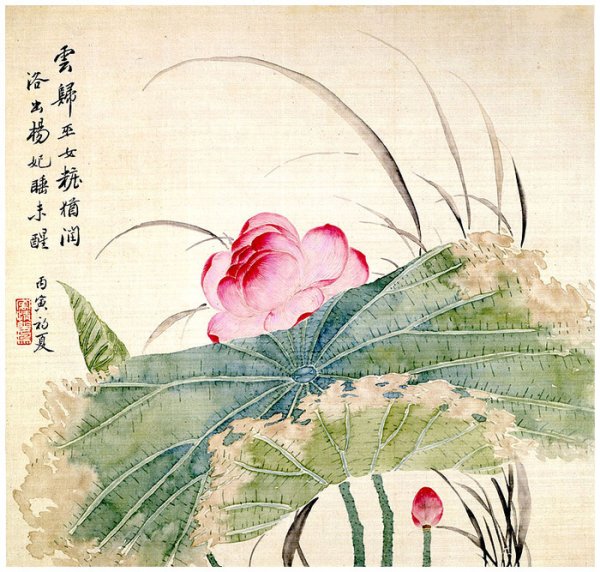 雲歸巫女粧猶潤
浴出楊妃睡未醒
丙寅初夏